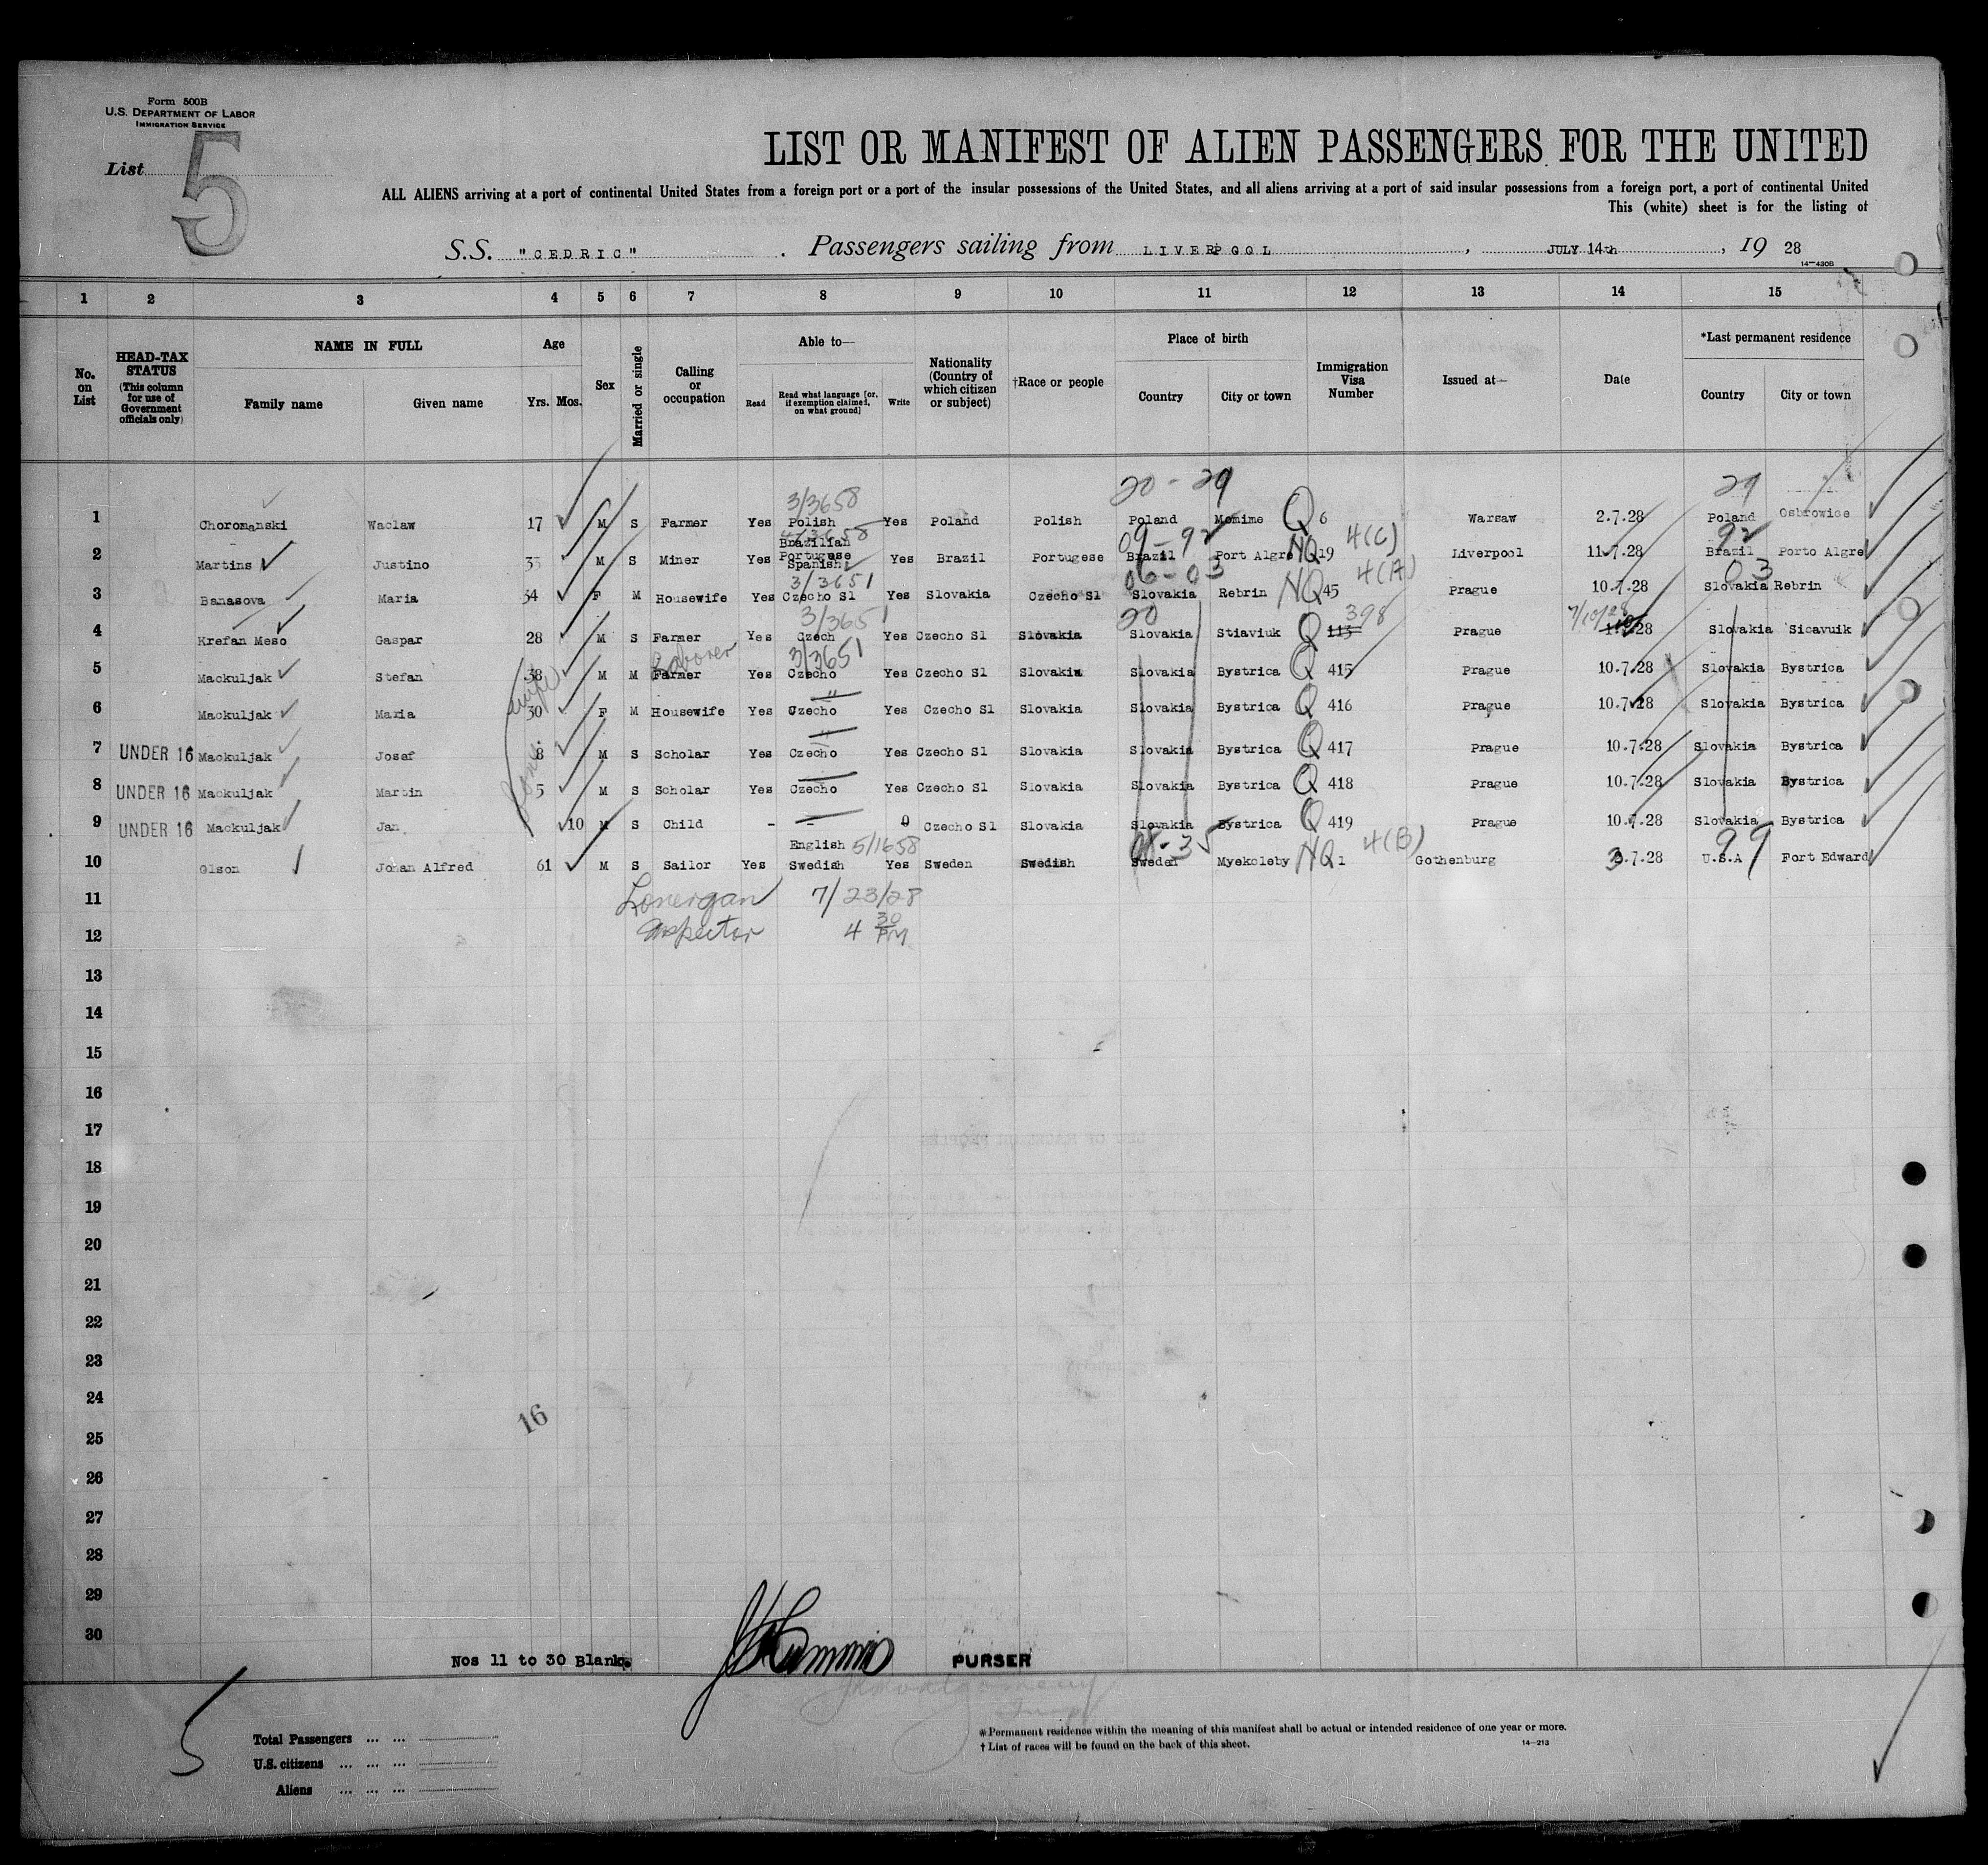 Form 500B
U.S. DEPARTMENT OF LABOR
IMMIGRATION SERVICE
List 5
LIST OR MANIFEST OF ALIEN PASSENGERS FOR THE UNITED
ALL ALIENS arriving at a port of continental United States from a foreign port or a port of the insular possessions of the United States, and all aliens arriving at a port of said insular possessions from a foreign port, a port of continental United
This (white) sheet is for the listing of
S.S. "CEDRIC" . Passengers sailing from LIVERPOOL , JULY 14th , 19 28
14-430B
1 2 3 4 5 6 7 8 9 10 11 12 13 14 15
No. on List
HEAD-TAX STATUS (This column for use of Government officials only)
NAME IN FULL
Family name Given name
Age
Yrs. Mos.
Sex
Married or single
Calling or occupation
Able to—
Read Read what language [or, if exemption claimed, on what ground] Write
Nationality (Country of which citizen or subject)
†Race or people
Place of birth
Country City or town
Immigration Visa Number
Issued at—
Date
*Last permanent residence
Country City or town
3/3658 20-29 29
1 Choromanski Waclaw 17 M S Farmer Yes Polish Yes Poland Polish Poland Momime Q 6 Warsaw 2.7.28 Poland Osbrowise
Brazilian 09-92 4(C) 92
2 Martins Justino 35 M S Miner Yes Portugese Spanish Yes Brazil Portugese Brazil Port Algre NQ 19 Liverpool 11.7.28 Brazil Porto Algre
3/3651 06-03 4(A) 03
3 Banasova Maria 34 F M Housewife Yes Czecho Sl Yes Slovakia Czecho Sl Slovakia Rebrin NQ 45 Prague 10.7.28 Slovakia Rebrin
3/3651 20 398 7/10/28
4 Krefan Meso Gaspar 28 M S Farmer Yes Czech Yes Czecho Sl Slovakia Slovakia Stiaviuk Q 113 Prague 28 Slovakia Sicavuik
Laborer 3/3651
5 Mackuljak Stefan 38 M M Farmer Yes Czecho Yes Czecho Sl Slovakia Slovakia Bystrica Q 415 Prague 10.7.28 Slovakia Bystrica
wife "
6 Mackuljak Maria 30 F M Housewife Yes Czecho Yes Czecho Sl Slovakia Slovakia Bystrica Q 416 Prague 10.7.28 Slovakia Bystrica
"
7 UNDER 16 Mackuljak Josef 8 M S Scholar Yes Czecho Yes Czecho Sl Slovakia Slovakia Bystrica Q 417 Prague 10.7.28 Slovakia Bystrica
sons
8 UNDER 16 Mackuljak Martin 5 M S Scholar Yes Czecho Yes Czecho Sl Slovakia Slovakia Bystrica Q 418 Prague 10.7.28 Slovakia Bystrica
9 UNDER 16 Mackuljak Jan 10 M S Child - - 0 Czecho Sl Slovakia Slovakia Bystrica Q 419 Prague 10.7.28 Slovakia Bystrica
English 5/1658 08-35 4(B) 99
10 Olson Johan Alfred 61 M S Sailor Yes Swedish Yes Sweden Swedish Sweden Myekoleby NQ 1 Gothenburg 3.7.28 U.S.A Fort Edward
11 Lonergan 7/23/28
12 Inspector 4 30 PM
13
14
15
16
17
18
19
20
21
22
23
24
16
25
26
27
28
29
30
Nos 11 to 30 Blank. PURSER
5
Total Passengers ... ...
U.S. citizens ... ... ...
Aliens ... ... ...
*Permanent residence within the meaning of this manifest shall be actual or intended residence of one year or more.
†List of races will be found on the back of this sheet.
14-213